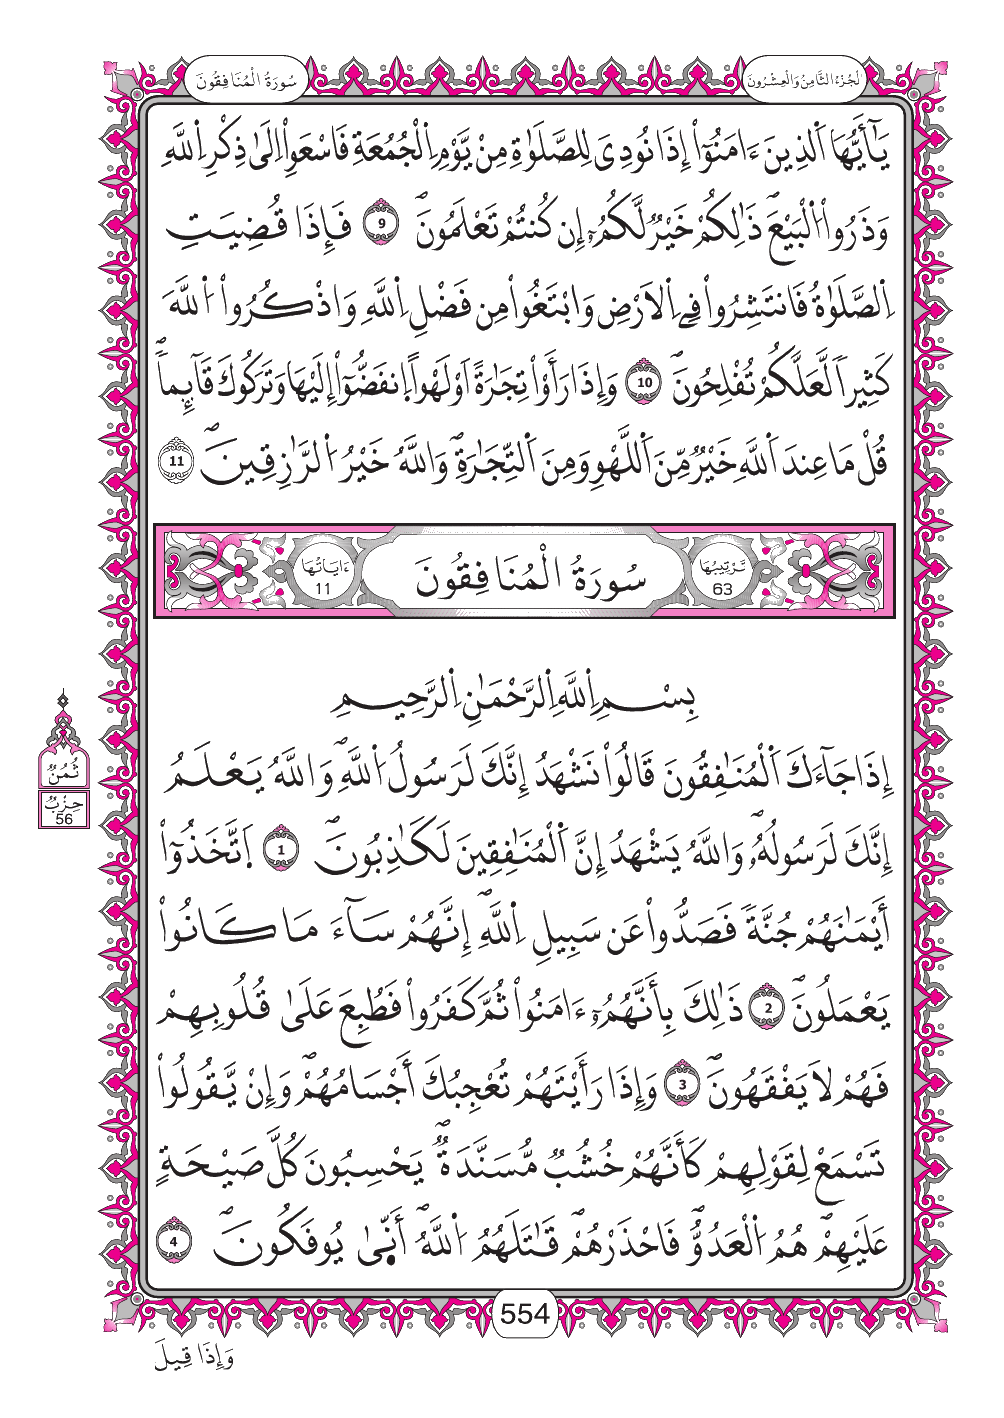 سُورَةُ الْمُنَافِقُونَ
اَلْجُزْءُ الثَّامِنُ وَالْعِشْرُونَ
يَٰٓأَيُّهَا اَلذِينَ ءَامَنُوٓاْ إِذَا نُودِىَ لِلصَّلَوٰةِ مِنْ يَّوْمِ اِلْجُمُعَةِ فَاسْعَوِاْ اِلَىٰ ذِكْرِ اِللَّهِ
وَذَرُواْ اُلْبَيْعَۖ ذَٰلِكُمْ خَيْرٌ لَّكُمُۥٓ إِن كُنتُمْ تَعْلَمُونَۖ 9 فَإِذَا قُضِيَتِ
اِلصَّلَوٰةُ فَانتَشِرُواْ فِے اِلَارْضِ وَابْتَغُواْ مِن فَضْلِ اِللَّهِ وَاذْكُرُواْ اُللَّهَ
كَثِيراً لَّعَلَّكُمْ تُفْلِحُونَۖ 10 وَإِذَا رَأَوْاْ تِجَٰرَةً اَوْ لَهْواً اِنفَضُّوٓاْ إِلَيْهَا وَتَرَكُوكَ قَآئِماًۖ
قُلْ مَا عِندَ اَللَّهِ خَيْرٌ مِّنَ اَللَّهْوِ وَمِنَ اَلتِّجَٰرَةِۖ وَاللَّهُ خَيْرُ اُلرَّٰزِقِينَۖ 11
تَرْتِيبُهَا 63
سُورَةُ الْمُنَافِقُونَ
ءَايَاتُهَا 11
بِسْمِ اِللَّهِ اِلرَّحْمَٰنِ اِلرَّحِيمِ
إِذَا جَآءَكَ اَلْمُنَٰفِقُونَ قَالُواْ نَشْهَدُ إِنَّكَ لَرَسُولُ اُللَّهِۖ وَاللَّهُ يَعْلَمُ
إِنَّكَ لَرَسُولُهُۥۖ وَاللَّهُ يَشْهَدُ إِنَّ اَلْمُنَٰفِقِينَ لَكَٰذِبُونَۖ 1 اَ۪تَّخَذُوٓاْ
أَيْمَٰنَهُمْ جُنَّةً فَصَدُّواْ عَن سَبِيلِ اِللَّهِۖ إِنَّهُمْ سَآءَ مَا كَانُواْ
يَعْمَلُونَۖ 2 ذَٰلِكَ بِأَنَّهُمُۥٓ ءَامَنُواْ ثُمَّ كَفَرُواْ فَطُبِعَ عَلَىٰ قُلُوبِهِمْ
فَهُمْ لَا يَفْقَهُونَۖ 3 وَإِذَا رَأَيْتَهُمْ تُعْجِبُكَ أَجْسَامُهُمْۖ وَإِنْ يَّقُولُواْ
تَسْمَعْ لِقَوْلِهِمْ كَأَنَّهُمْ خُشُبٌ مُّسَنَّدَةٌۖ يَحْسِبُونَ كُلَّ صَيْحَةٍ
عَلَيْهِمْۖ هُمُ اُلْعَدُوُّۖ فَاحْذَرْهُمْۖ قَٰتَلَهُمُ اُللَّهُۖ أَنّ۪ىٰ يُوفَكُونَۖ 4
ثُمُنٌ
حِزْبُ
56
554
وَإِذَا قِيلَ